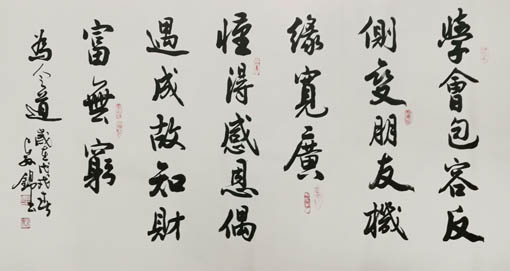 學會包容反
側變朋友機
緣寬廣
懂得感恩偶
遇成故知財
富無窮
為人之道
歲在戊戌春